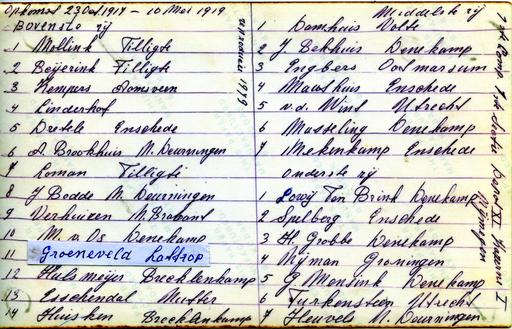 Opkomst 23 Oct 1917 - 10 Mei 1919
Bovenste rij
1 Mollink Tilligte
2 Beijerink Tilligte
3 Kempers
4 Linderhof
5 Enschede
6 A Brookhuis N. Deurningen
7 Loman Tilligte
8 J Bodde N. Deurningen
9 Verhuizen N. Brabant
10 M. v. Os Denekamp
11 Groeneveld Lattrop
12 Hulsmeijer Brecklenkamp
13 Esschendal Mutter
14 Huisken Brecklenkamp
Middelste rij
1 Damhuis Volte
2 J Bekhuis Denekamp
3 Engbers Ootmarsum
4 Maashuis Enschede
5 v.d. Wint Utrecht
6 Masseling Denekamp
7 Mekenkamp Enschede
onderste rij
1 Lowij Ten Brink Denekamp
2 Spelberg Enschede
3 H. Grobbe Denekamp
4 Nijman Groningen
5 G Mensink Denekamp
6 Turkenstein Utrecht
7 Heuvels N. Deurningen
Nijmegen